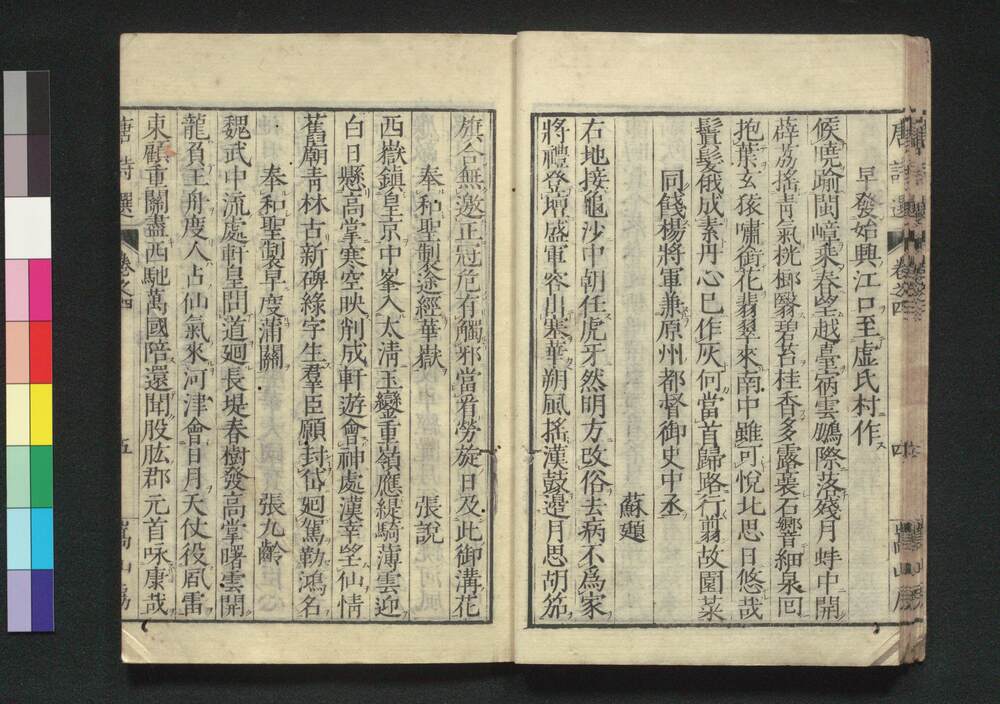 早發始興江口至虛氏村作
候曉踰閩嶂乘春望越臺宿雲鵬際落殘月蚌中開
薜荔搖青氣桄榔翳碧苔桂香多露裛石響細泉回
抱葉玄猿嘯銜花翡翠來南中雖可悅北思日悠哉
鬒髮俄成素丹心已作灰何當首歸路行翦故園萊
同餞楊將軍兼原州都督御史中丞
蘇頲
右地接龜沙中朝任虎牙然明方改俗去病不爲家
將禮登壇盛軍容出塞華朔風搖漢鼓邊月思胡笳
旗合無邀正冠危有觸邪當看勞旋日及此御溝花
奉和聖製途經華嶽 張說
西嶽鎮皇京中峯入太清玉鑾重嶺應緹騎薄雲迎
白日懸高掌寒空映削成軒遊會神處漢幸望仙情
舊廟青林古新碑綠字生羣臣願封岱廻駕勒鴻名
奉和聖製早度蒲關 張九齡
魏武中流處軒皇問道廻長堤春樹發高掌曙雲開
龍負王舟度人占仙氣來河津會日月天仗役風雷
東顧重關盡西馳萬國陪還聞股肱郡元首咏康哉
唐詩選 卷之四 五